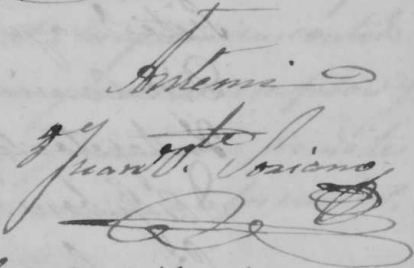 Antemi
Juan V.te Soriano